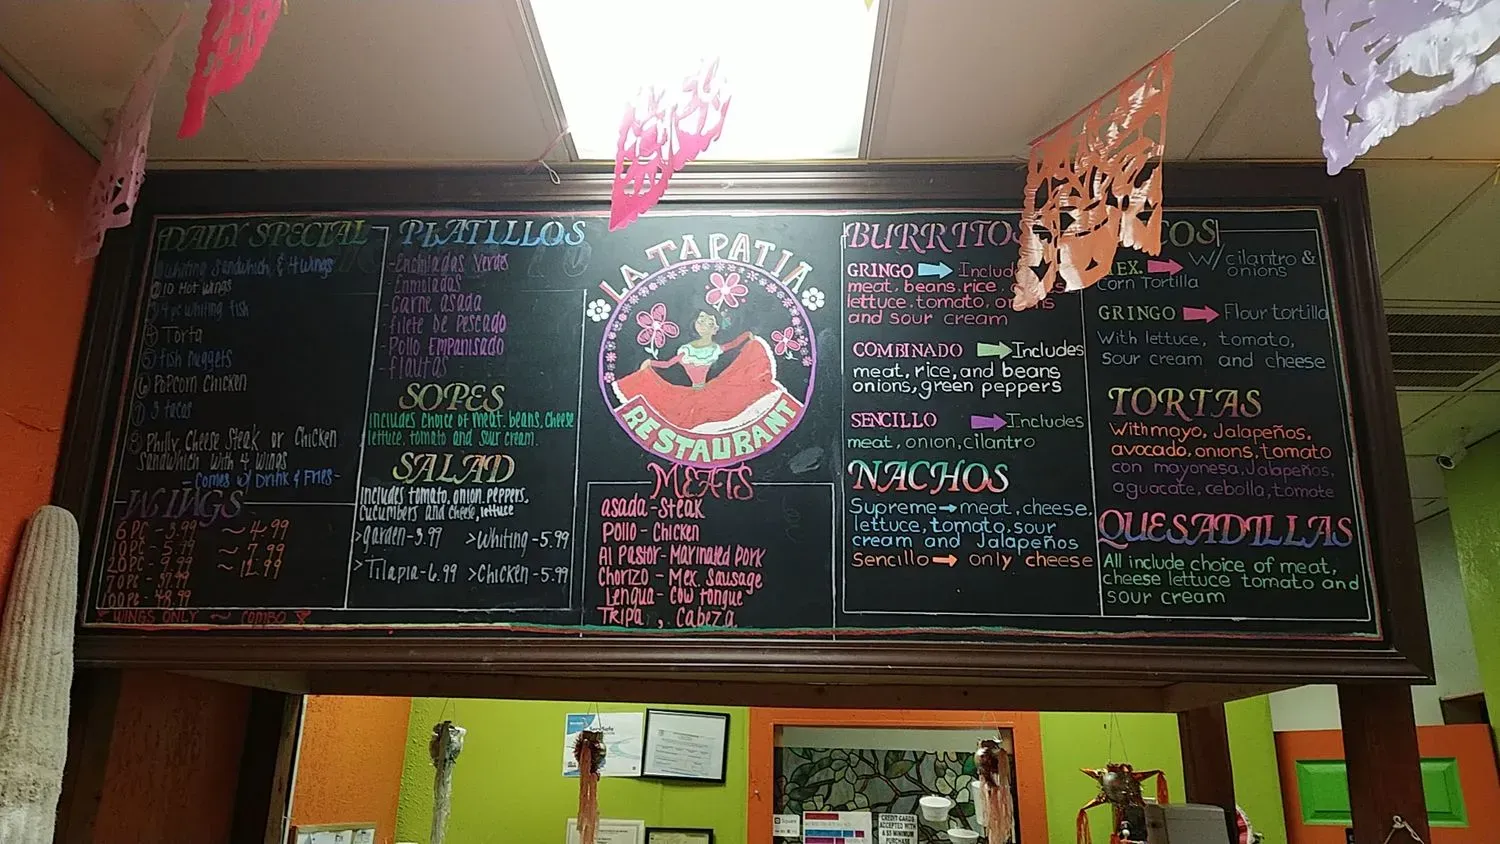 DAILY SPECIAL
① Whiting Sandwhich & 4 Wings
② 10 Hot Wings
③ 4 pc whiting fish
④ Torta
⑤ fish nuggets
⑥ Popcorn Chicken
⑦ 3 tacos
⑧ Philly Cheese Steak or Chicken
Sandwhich with 4 Wings
- Comes w/ Drink & Fries -
WINGS
6 PC - 3.99 ~ 4.99
10 PC - 5.99 ~ 7.99
20 PC - 9.99 ~ 12.99
70 PC - 37.99
100 PC - 48.99
WINGS ONLY ~ COMBO
PLATILLOS
- Enchiladas Verdes
- Enmoladas
- Carne asada
- filete de Pescado
- Pollo Empanisado
- flautas
SOPES
includes choice of meat, beans, cheese
lettuce, tomato and sour cream.
SALAD
includes tomato, onion, peppers,
cucumbers and cheese, lettuce
>garden-3.99 >Whiting-5.99
>Tilapia-6.99 >Chicken-5.99
LA TAPATIA
RESTAURANT
MEATS
asada - Steak
Pollo - Chicken
Al Pastor - Marinated Pork
Chorizo - Mex. Sausage
Lengua - Cow tongue
Tripa , Cabeza
BURRITOS
GRINGO → Includ
meat, beans, rice,
lettuce, tomato, onions
and sour cream
COMBINADO → Includes
meat, rice, and beans
onions, green peppers
SENCILLO → Includes
meat, onion, cilantro
NACHOS
Supreme → meat, cheese,
lettuce, tomato, sour
cream and Jalapeños
Sencillo → only cheese
COS
MEX. → w/ cilantro &
onions
Corn Tortilla
GRINGO → Flour tortilla
With lettuce, tomato,
sour cream and cheese
TORTAS
With mayo, Jalapeños,
avocado, onions, tomato
con mayonesa, Jalapeños,
aguacate, cebolla, tomate
QUESADILLAS
All include choice of meat,
cheese lettuce tomato and
sour cream
ServSafe
Square
CREDIT CARDS
ACCEPTED WITH
A $5 MINIMUM
PURCHASE